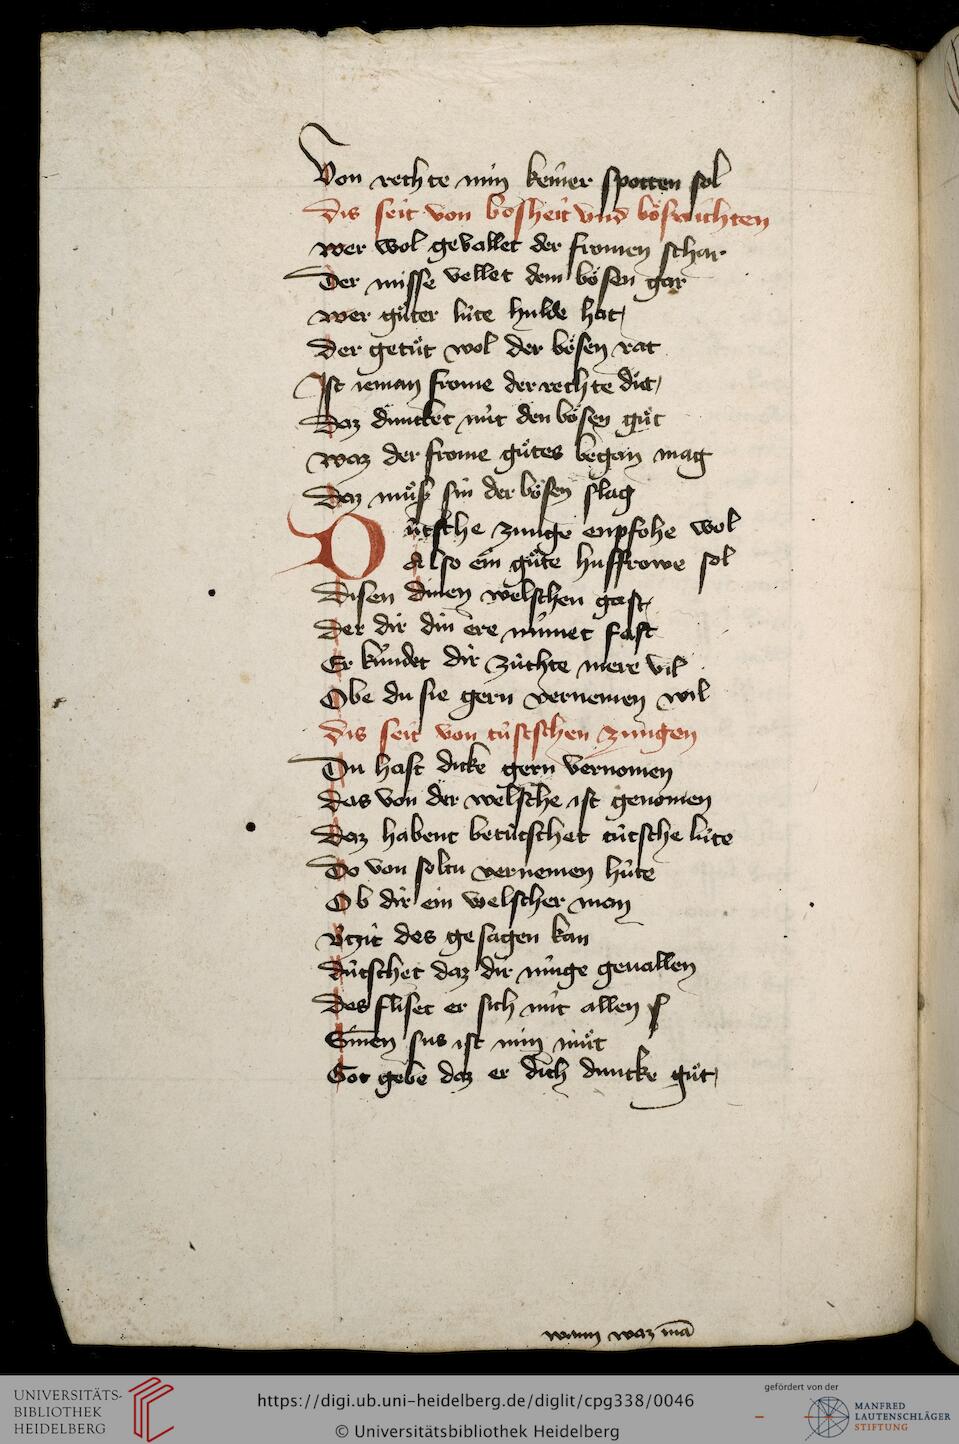 Von rechte min keiner spotten sol
dis seit von bosheit vnd böswichten
wer wol gevallet der fromen schar
Der misse vellet dem bösen gar
wer gůter lúte hulde hat
der getůt wol der bösen rat
Ist ieman frome der rechte důt
Daz duncket nút den bösen gůt
waz der frome gůtes began mag
Daz můß sin der bösen slag
Dútsche zunge enpfohe wol
Also ein gůte husfrowe sol
Disen dinen welschen gast
der dir din ere minnet fast
Er kúndet dir zúchte mere vil
Obe du sie gern vernemen wil
dis seit von tústschen zungen
Du hast dicke gern vernomen
das von der welsche ist genomen
Daz habent betútschet tútsche lúte
Do von soltu vernemen húte
Ob dir ein welscher man
útzit des gesagen kan
dútschet daz dir múge geuallen
des fliset er sich mit allen
Sinnen sus ist min můt
Got gebe daz er dich duncke gůt
wann waz mā
UNIVERSITÄTS-
BIBLIOTHEK
HEIDELBERG
https://digi.ub.uni-heidelberg.de/diglit/cpg338/0046
© Universitätsbibliothek Heidelberg
gefördert von der
MANFRED
LAUTENSCHLÄGER
STIFTUNG